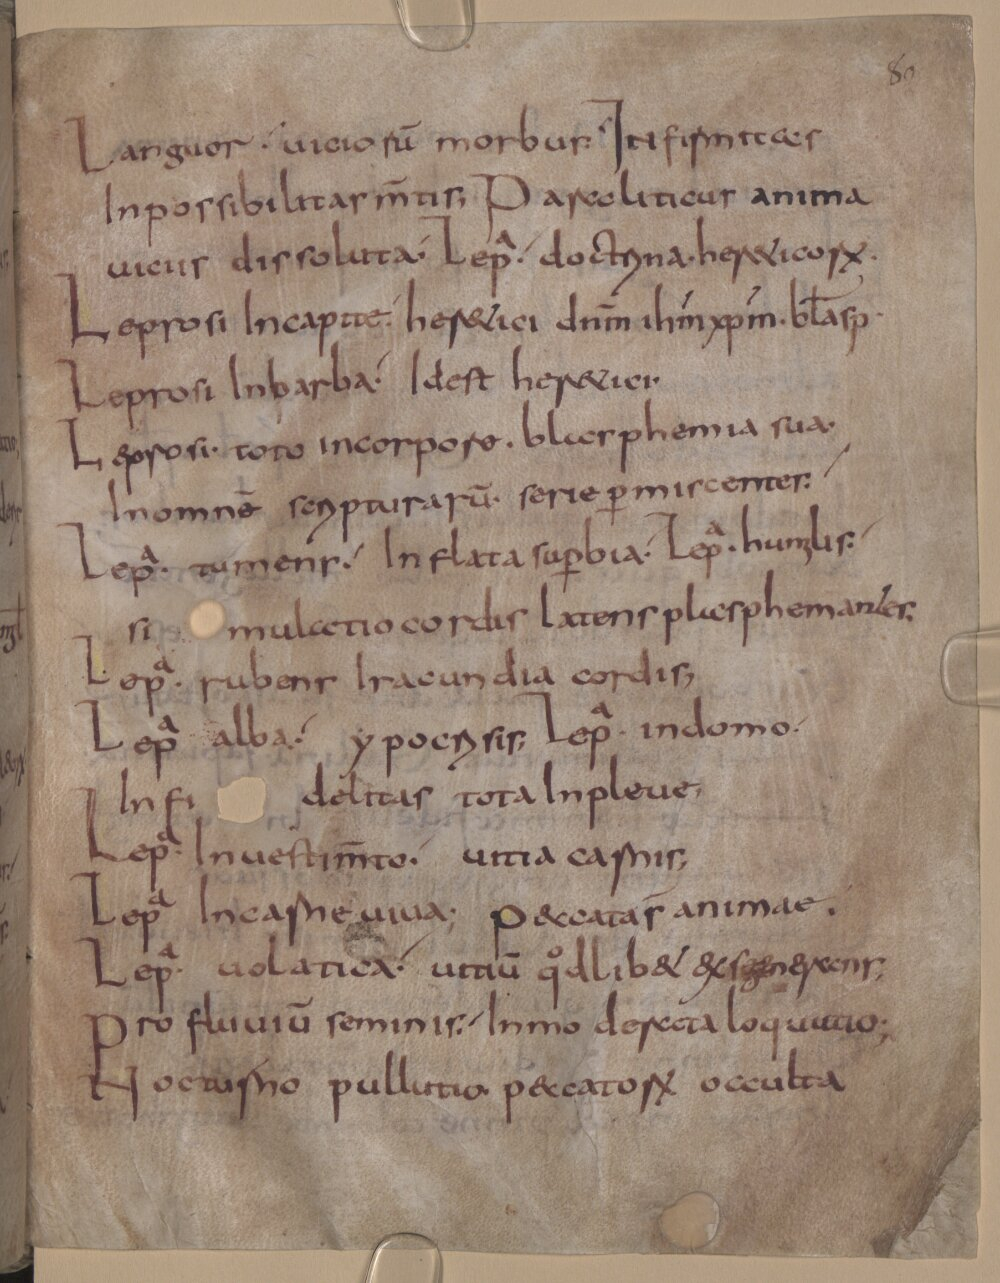 80
Languor · uiciosū morbus · Iti
Inpossibilitas m̄tis; Paraliticus anima
uicus dissoluta · Lepᵃ · doctrina · hereticorꝝ ·
Leprosi Incapite · heretici dn̄m ih̄m xp̄m · bl̄asp ·
Leprosi Inbarba · Idest heretici ·
Leprosi · toto incorpore · blasphemia sua ·
Inomnē scripturarū · serie ꝑmiscentes ·
Lepᵃ · tumens · Inflata suꝑbia · Lepᵃ · humilis ·
si mulatio cordis latens plasphemantes ·
Lepᵃ · rubens Iracundia cordis;
Lepᵃ alba · ypocrisis; Lepᵃ · indomo ·
Infi delitas tota Inpleue;
Lepᵃ · Inuestim̄to · uitia carnis;
Lepᵃ Incarne uiua · peccatar̄ animae ·
Lepᵃ · uolatica · uitiū qͦdlib&
Profluuiū seminis · Inmo derata loquutio;
Nocturno pullutio · p&catorꝝ occulta